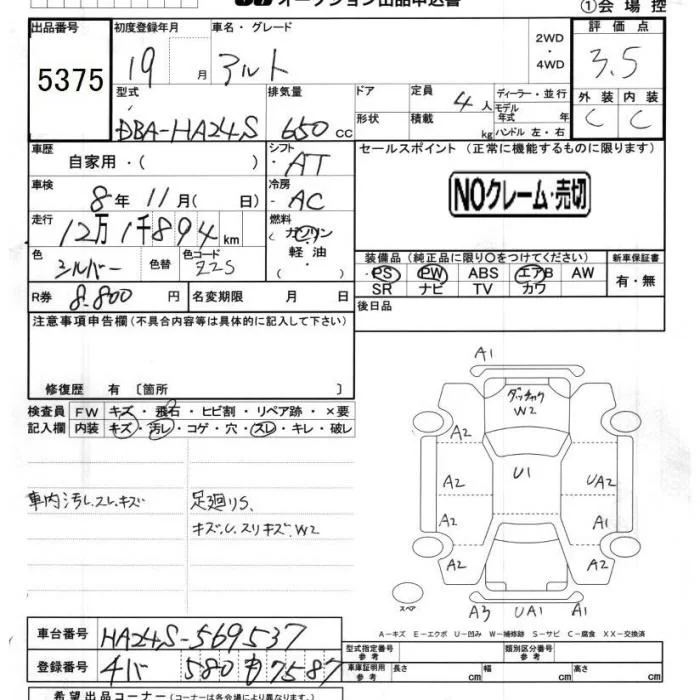 オークション出品申込書
①会場控
出品番号
5375
初度登録年月
19 月
車名・グレード
アルト
2WD
・
4WD
評価点
3.5
型式
DBA-HA24S
排気量
650 cc
ドア
定員
4人
形状
積載
kg
ディーラー・並行
モデル年式 年
ハンドル 左・右
外装 内装
C C
車歴
自家用・( )
シフト
AT
セールスポイント (正常に機能するものに限ります)
NOクレーム・売切
車検
8年 11月( 日)
冷房
AC
走行
12万1千894km
燃料
ガソリン
軽油
色
シルバー
色替
色コード
Z2S
装備品 (純正品に限り○をつけてください)
PS PW ABS エアB AW
SR ナビ TV カワ
新車保証書
有・無
R券 8.800 円
名変期限 月 日
後日品
注意事項申告欄 (不具合内容等は具体的に記入して下さい)
修復歴 有 〔箇所 〕
検査員記入欄
FW キズ・飛石・ヒビ割・リペア跡・×要
内装 キズ・汚レ・コゲ・穴・スレ・キレ・破レ
車内汚レ.スレ.キズ
足廻りS、
キズ.U.スリキズ.W2
A1
W2
A2
A2 U1 UA2
A2 A1
A2 A2
スペア
A3 UA1 A1
A-キズ E-エクボ U-凹み W-補修跡 S-サビ C-腐食 XX-交換済
車台番号 HA24S-569537
登録番号 580 も 7587
型式指定番号
参考
類別区分番号
参考
車庫証明用
参考
長さ cm 幅 cm 高さ cm
希望出品コーナー (コーナーは各会場により異なります。)